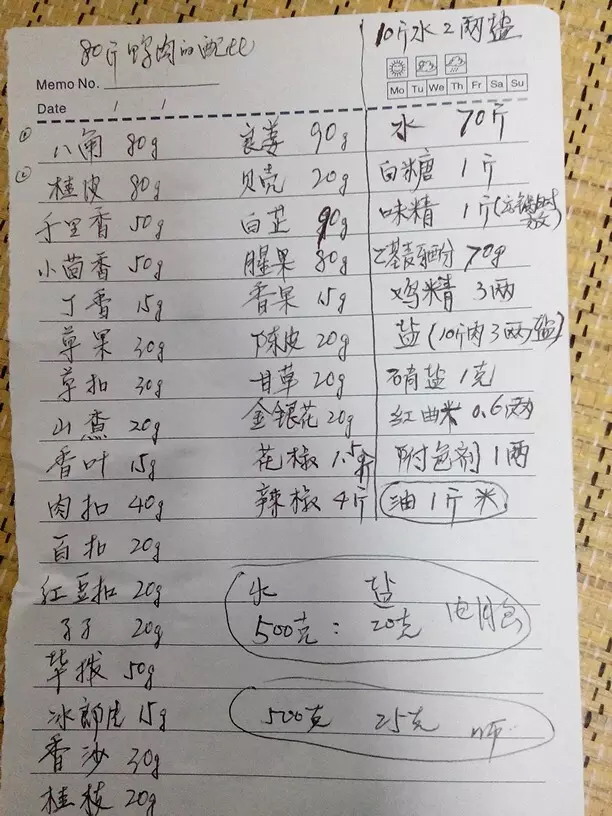 80斤鸭肉的配比
10斤水2两盐
Memo No.
Mo Tu We Th Fr Sa Su
Date / /
八角 80g
桂皮 80g
千里香 50g
小茴香 50g
丁香 15g
草果 30g
草扣 30g
山楂 20g
香叶 15g
肉扣 40g
百扣 20g
红豆扣 20g
孑子 20g
毕拨 50g
冰郎虎 15g
香沙 30g
桂枝 20g
良姜 90g
贝壳 20g
白芷 90g
腥果 80g
香果 15g
陈皮 20g
甘草 20g
金银花 20g
花椒 1.5斤
辣椒 4斤
水 70斤
白糖 1斤
味精 1斤
乙基麦芽酚 70g
鸡精 3两
盐(10斤肉3两盐)
硝盐 1克
红曲米 0.6两
附色剂 1两
油1斤米
水 盐
500克:20克
500克 25克